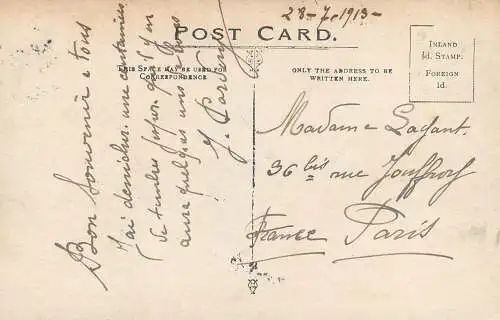 28-7-1913-
POST CARD.
THIS SPACE MAY BE USED FOR
CORRESPONDENCE
ONLY THE ADDRESS TO BE
WRITTEN HERE.
INLAND
½d. STAMP.
FOREIGN
1d.
Bon Souvenir a tous
J'ai demicher une
de timbres
aura quelques uns
Madame Lagant.
36 bis rue Jouffroy
France Paris